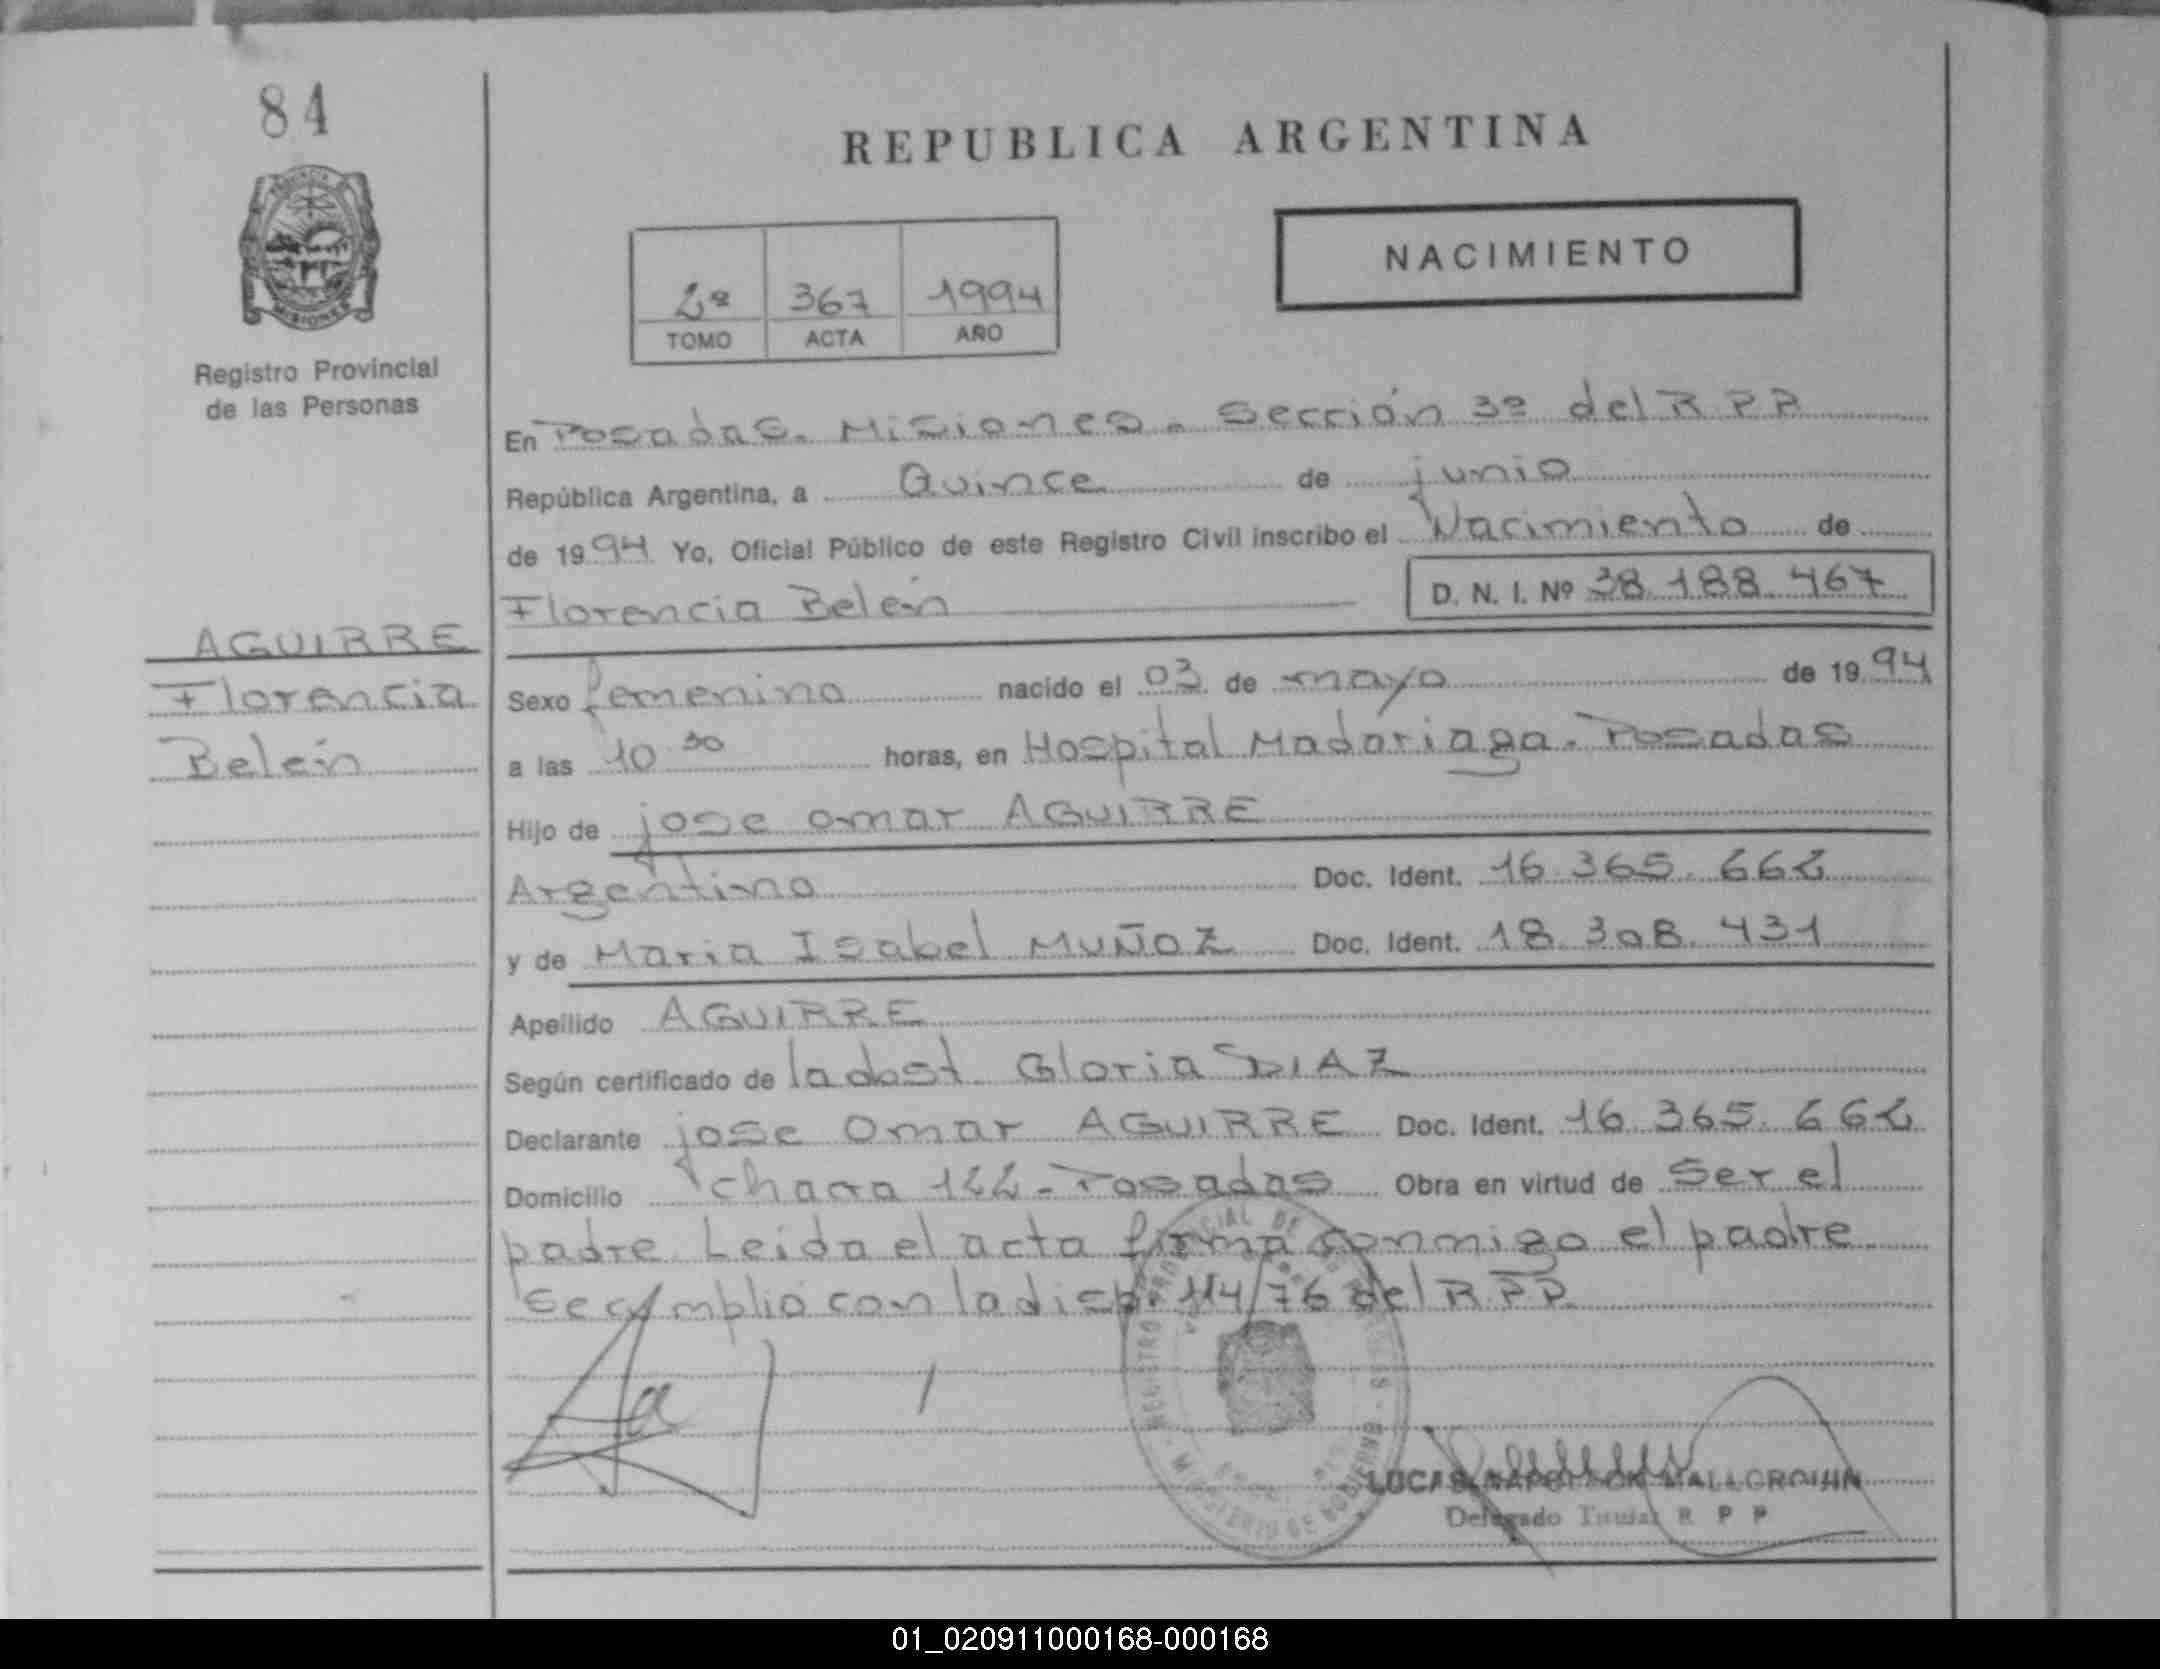 84
REPUBLICA ARGENTINA
MISIONES
NACIMIENTO
2º 367 1994
TOMO ACTA AÑO
Registro Provincial
de las Personas
En Posadas. Misiones. Sección 3º del R P P
República Argentina, a Quince de junio
de 1994 Yo, Oficial Público de este Registro Civil inscribo el Nacimiento de
Florencia Belén D. N. I. Nº 38.188.467
AGUIRRE
Florencia
Belén
Sexo femenino nacido el 03 de mayo de 1994
a las 10 30 horas, en Hospital Madariaga. Posadas
Hijo de jose omar AGUIRRE
Argentino Doc. Ident. 16.365.662
y de Maria Isabel MUÑOZ Doc. Ident. 18.308.431
Apellido AGUIRRE
Según certificado de la obst. Gloria DIAZ
Declarante jose Omar AGUIRRE Doc. Ident. 16.365.662
Domicilio chacra 122 - Posadas Obra en virtud de Ser el
padre Leida el acta firma conmigo el padre
Se cumplio con la disp. 114/76 del R.P.P.
LUCAS NAPOLEON
Delegado Titular R P P
01_020911000168-000168